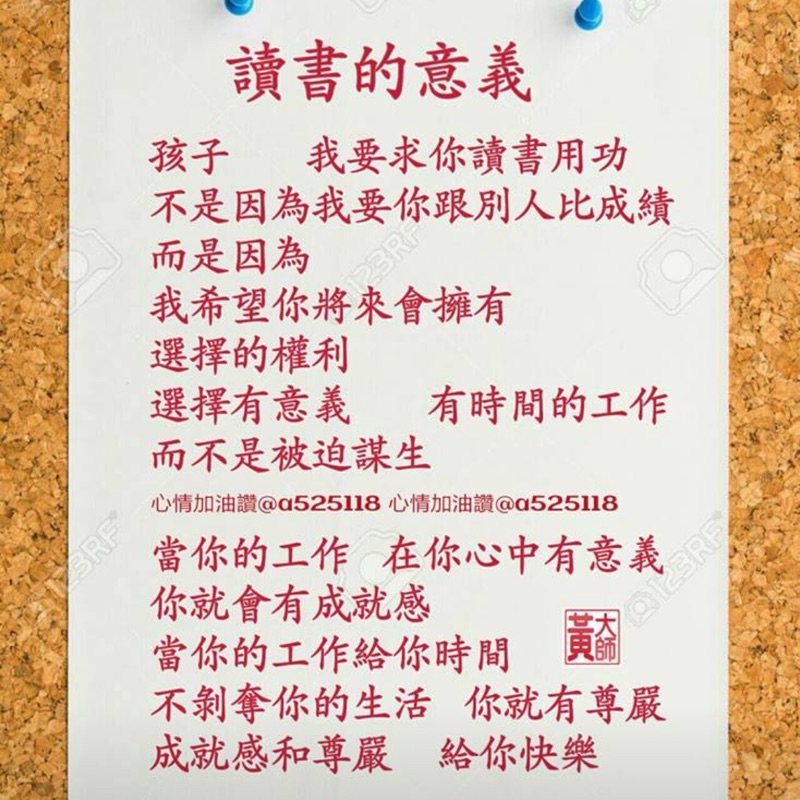 讀書的意義
孩子　　我要求你讀書用功
不是因為我要你跟別人比成績
而是因為
我希望你將來會擁有
選擇的權利
選擇有意義　　有時間的工作
而不是被迫謀生
心情加油讚@a525118 心情加油讚@a525118
當你的工作　在你心中有意義
你就會有成就感
黃大師
當你的工作給你時間
不剝奪你的生活　你就有尊嚴
成就感和尊嚴　給你快樂
123RF
123RF
123RF
123RF